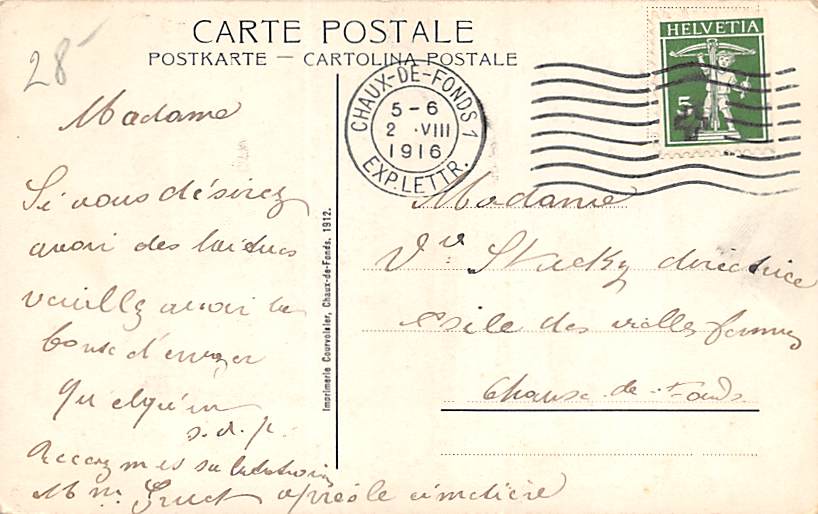 CARTE POSTALE
POSTKARTE — CARTOLINA POSTALE
28
HELVETIA
5
CHAUX-DE-FONDS 1
5-6
2 .VIII
1916
EXP. LETTR.
Madame
Si vous désirez
avoir des
veuillez avoir la
bonté d'envoyer
quelqu'un
s.v.p.
Recevez mes salutations
Mme après le cimetière
Imprimerie Courvoisier, Chaux-de-Fonds, 1912.
Madame
Vve Stucky directrice
Asile des vielles femmes
Chaux-de-Fonds